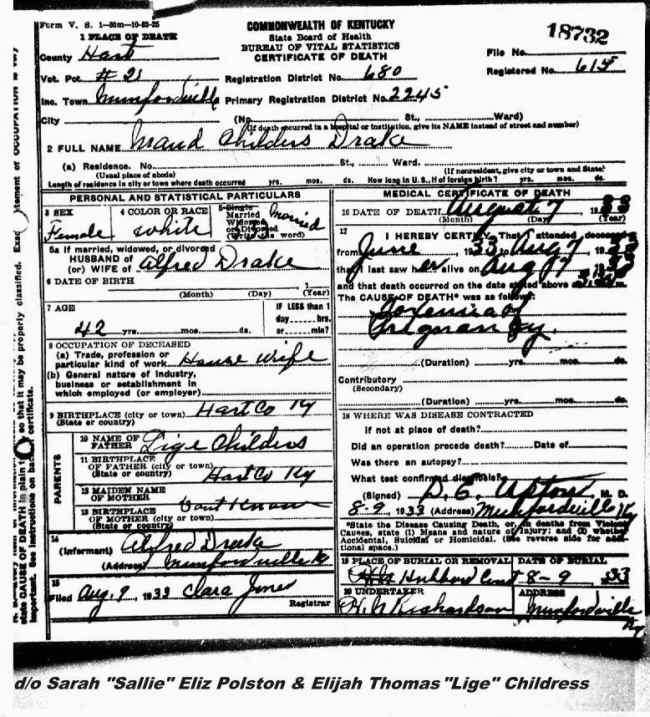 Form V. S. 1-50m-10-23-25
COMMONWEALTH OF KENTUCKY
State Board of Health
BUREAU OF VITAL STATISTICS
CERTIFICATE OF DEATH
18732
1 PLACE OF DEATH
County Hart
File No.
Vot. Pct # 21
Registration District No. 680
Registered No.
Inc. Town Munfordville
Primary Registration District No. 2245
City (No. St., Ward)
(If death occurred in a hospital or institution, give its NAME instead of street and number)
2 FULL NAME Maud Childers Drake
(a) Residence. No. St., Ward.
(Usual place of abode) (If nonresident, give city or town and State)
Length of residence in city or town where death occurred yrs. mos. ds. How long in U. S., if of foreign birth? yrs. mos. ds.
PERSONAL AND STATISTICAL PARTICULARS
3 SEX
Female
4 COLOR OR RACE
white
5 Single
Married
Widowed
or Divorced
(Write the word)
Married
5a If married, widowed, or divorced
HUSBAND of
(or) WIFE of Alfred Drake
6 DATE OF BIRTH
(Month) (Day) (Year)
7 AGE
42 yrs. mos. ds.
IF LESS than 1
day hrs.
or min?
8 OCCUPATION OF DECEASED
(a) Trade, profession or
particular kind of work House wife
(b) General nature of industry,
business or establishment in
which employed (or employer)
9 BIRTHPLACE (city or town) Hart Co Ky
(State or country)
PARENTS
10 NAME OF
FATHER Lige Childers
11 BIRTHPLACE
OF FATHER (city or town)
(State or country) Hart Co Ky
12 MAIDEN NAME
OF MOTHER Dont Know
13 BIRTHPLACE
OF MOTHER (city or town)
(State or country)
14
(Informant) Alfred Drake
(Address) Munfordville Ky
15
Filed Aug. 9, 1933 Clara Jones
Registrar
MEDICAL CERTIFICATE OF DEATH
16 DATE OF DEATH August 7 1933
(Month) (Day) (Year)
17
I HEREBY CERTIFY, That I attended deceased
from June 1933 to Aug 7, 1933
that I last saw her alive on Aug 7 1933
and that death occurred on the date stated above at
The CAUSE OF DEATH* was as follows:
Toxemia of
Pregnancy
(Duration) yrs. mos. ds.
Contributory
(Secondary)
(Duration) yrs. mos. ds.
18 WHERE WAS DISEASE CONTRACTED
if not at place of death?
Did an operation precede death? Date of
Was there an autopsy?
What test confirmed diagnosis?
(Signed) D. C. Upton, M. D.
8-9, 1933 (Address) Munfordville Ky
*State the Disease Causing Death, or, in deaths from Violent
Causes, state (1) Means and nature of Injury; and (2) whether
Accidental, Suicidal or Homicidal. (See reverse side for additional space.)
19 PLACE OF BURIAL OR REMOVAL
DATE OF BURIAL
8-9 33
20 UNDERTAKER
H. N Richardson
ADDRESS
Munfordville
Ky
d/o Sarah "Sallie" Eliz Polston & Elijah Thomas "Lige" Childress